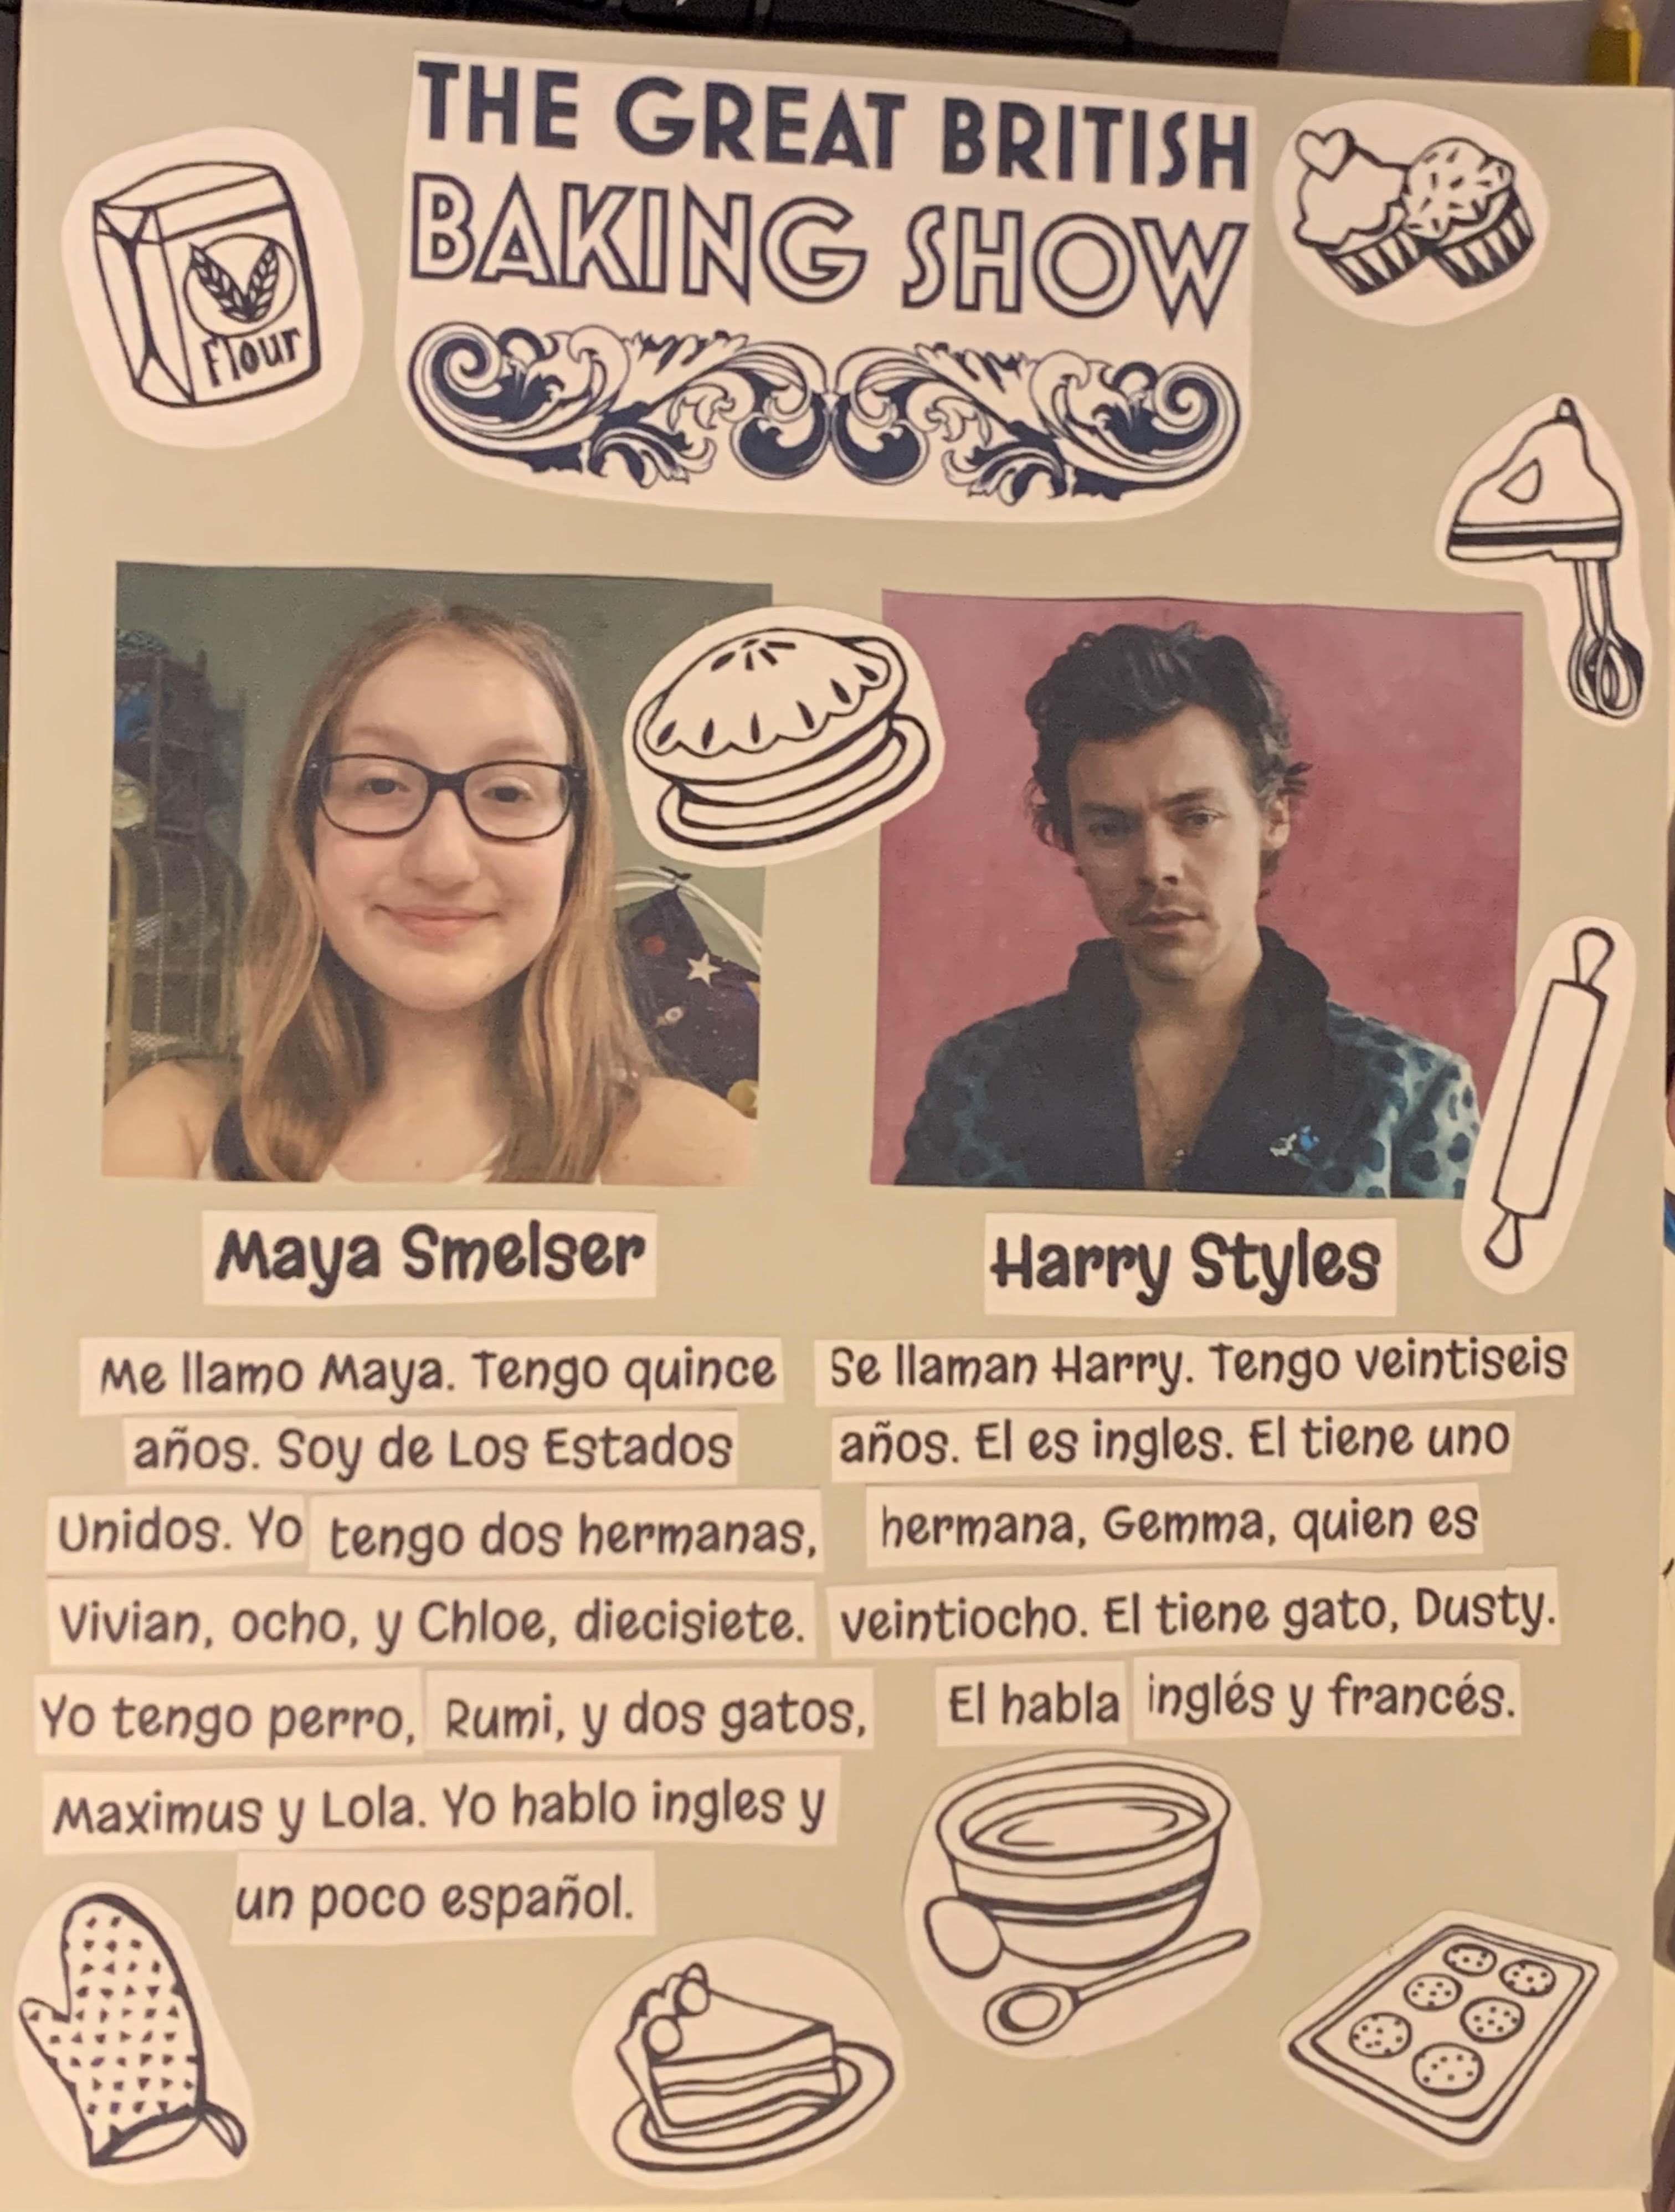 THE GREAT BRITISH
BAKING SHOW
Flour
Maya Smelser
Me llamo Maya. Tengo quince
años. Soy de Los Estados
Unidos. Yo tengo dos hermanas,
Vivian, ocho, y Chloe, diecisiete.
Yo tengo perro, Rumi, y dos gatos,
Maximus y Lola. Yo hablo ingles y
un poco español.
Harry Styles
Se llaman Harry. Tengo veintiseis
años. El es ingles. El tiene uno
hermana, Gemma, quien es
veintiocho. El tiene gato, Dusty.
El habla inglés y francés.